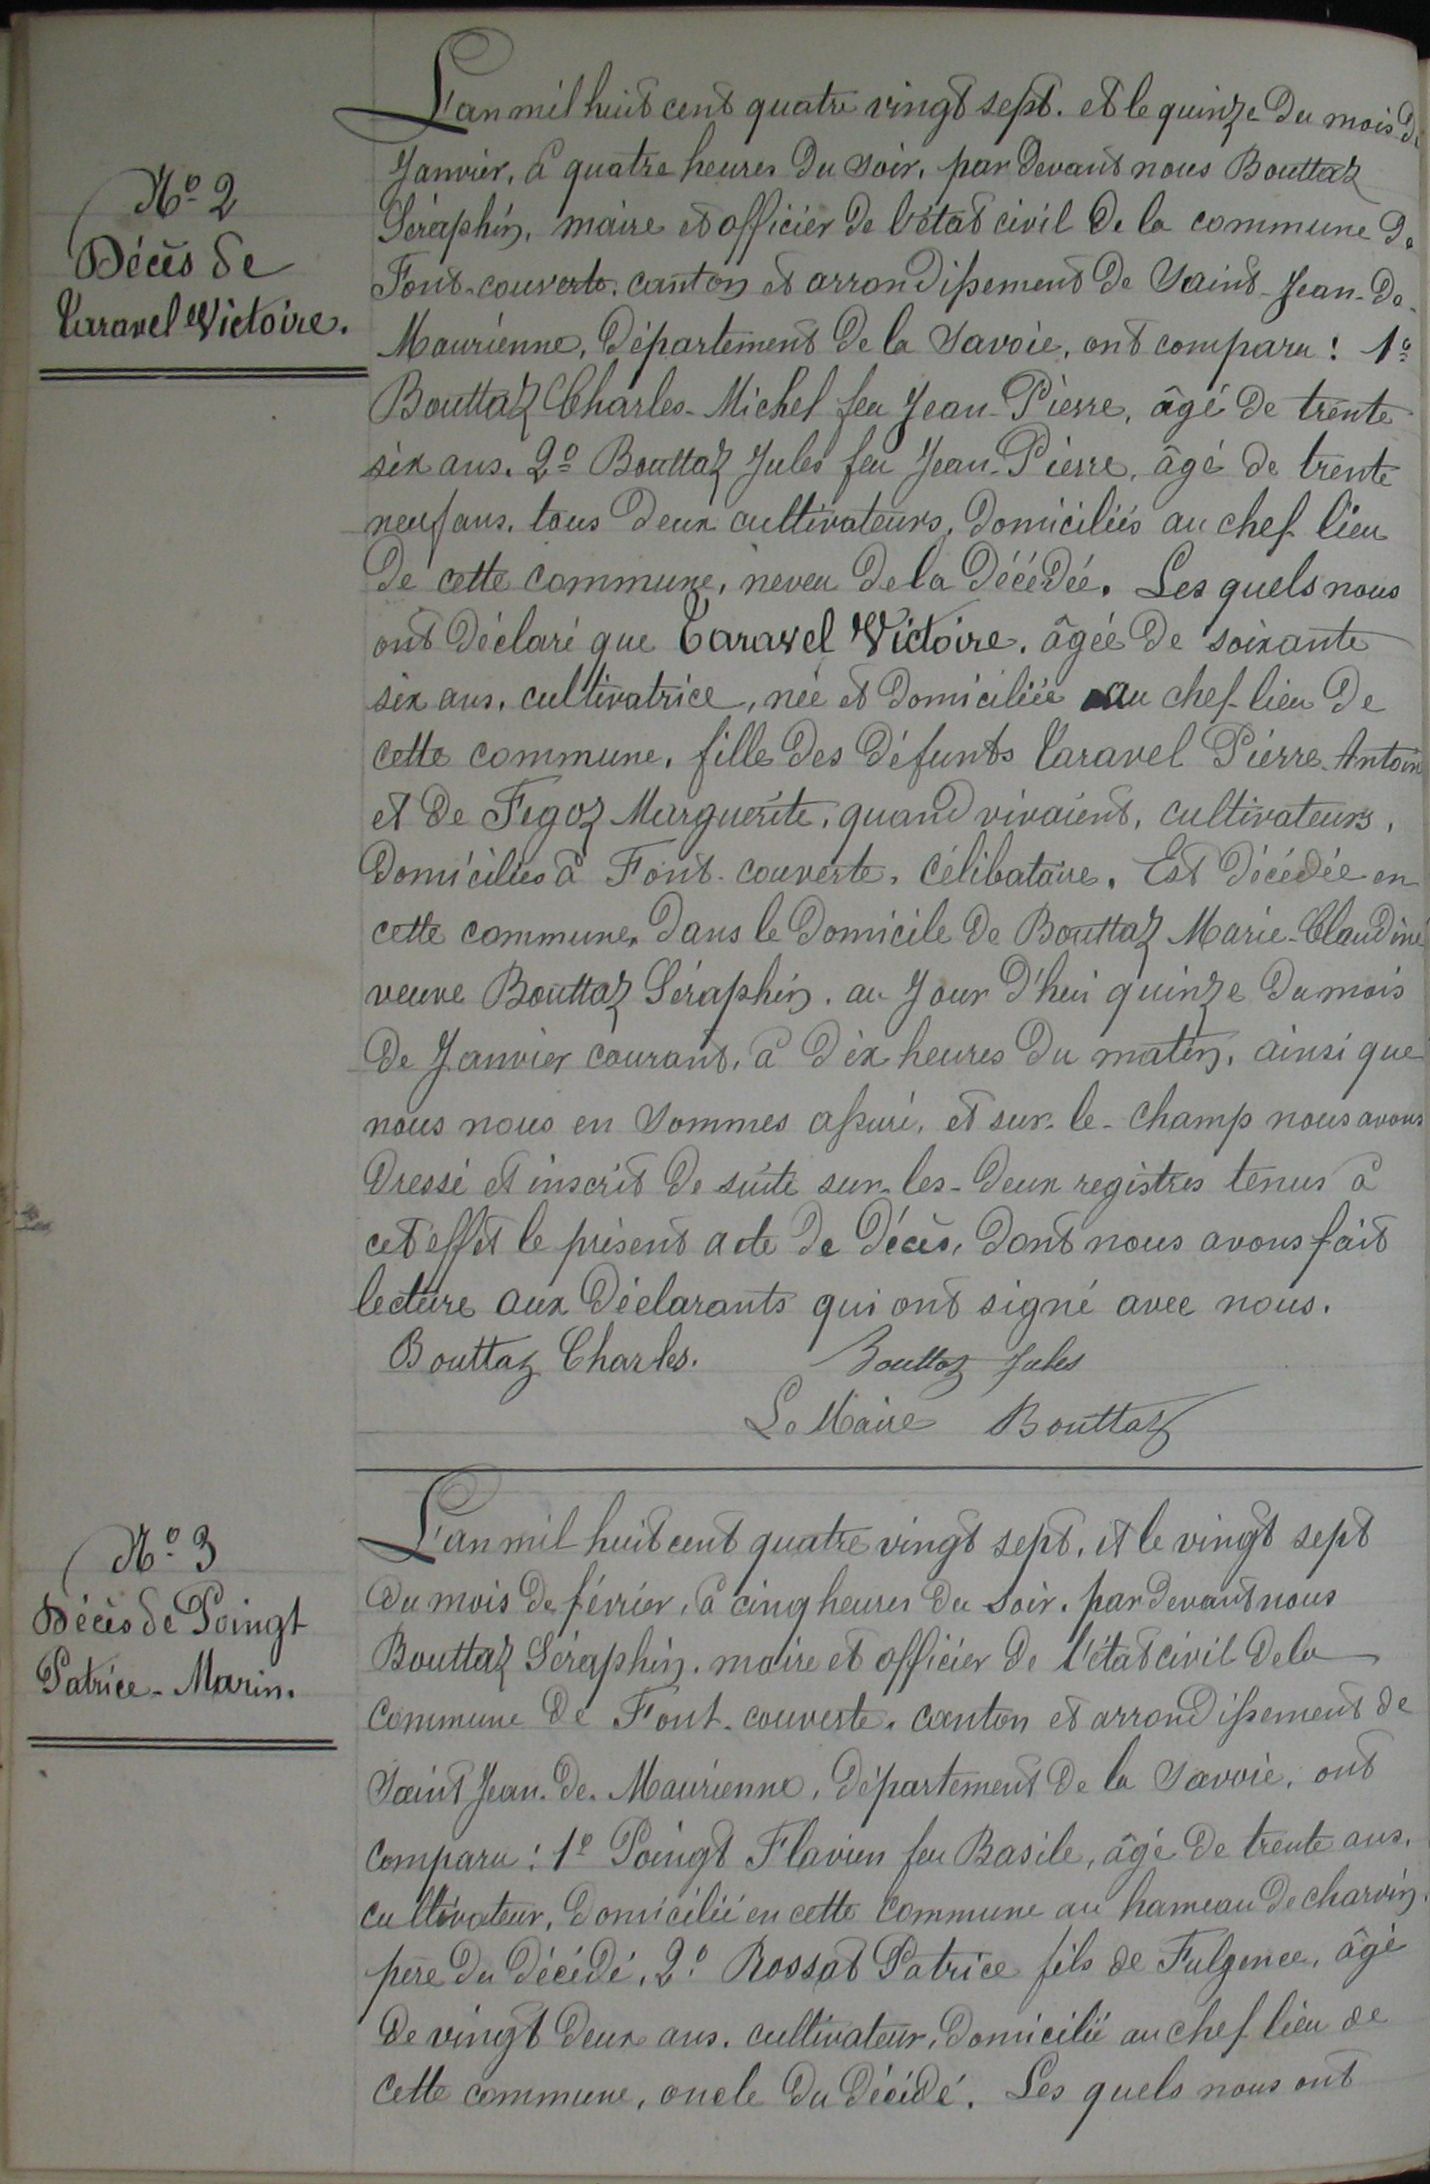 L'an mil huit cent quatre vingt sept. et le quinze du mois de
Janvier, à quatre heures du soir, par devant nous Bouttaz
Séraphin, maire et officier de l'état civil de la commune de
Font-couverte, canton et arrondissement de Saint-Jean-de-
Maurienne, département de la Savoie, ont comparu : 1º
Bouttaz Charles-Michel feu Jean-Pierre, âgé de trente
six ans. 2º Bouttaz Jules feu Jean-Pierre, âgé de trente
neuf ans. tous deux cultivateurs, domiciliés au chef lieu
de cette commune, neveu de la décédée. Les quels nous
ont déclaré que Taravel Victoire. âgée de soixante
six ans, cultivatrice, née et domiciliée au chef-lieu de
cette commune, fille des défunts Taravel Pierre-Antoine
et de Fegoz Marguerite, quand vivaient, cultivateurs,
domiciliés à Font-couverte. Célibataire. Est décédée en
cette commune, dans le domicile de Bouttaz Marie-Claudine
veuve Bouttaz Séraphin. au Jour d'hui quinze du mois
de Janvier courant, à dix heures du matin, ainsi que
nous nous en sommes assuré, et sur-le-champ nous avons
dressé et inscrit de suite sur-les-deux registres tenus à
cet effet le présent acte de décès, dont nous avons fait
lecture aux déclarants qui ont signé avec nous.
Bouttaz Charles. Bouttaz Jules
Le Maire Bouttaz
Nº 2
Décès de
Taravel Victoire.
L'an mil huit cent quatre vingt sept, et le vingt sept
du mois de février, à cinq heures du soir. par devant nous
Bouttaz Séraphin. maire et officier de l'état civil de la
commune de Font-couverte. canton et arrondissement de
Saint Jean-de-Maurienne, département de la Savoie, ont
comparu : 1º Poingt Flavien feu Basile, âgé de trente ans.
cultivateur, domicilié en cette commune au hameau de charvin.
père du décédé, 2º Rossat Patrice fils de Fulgence, âgé
de vingt deux ans. cultivateur, domicilié au chef lieu de
cette commune, oncle du décédé. Les quels nous ont
Nº 3
Décès de Poingt
Patrice-Marin.